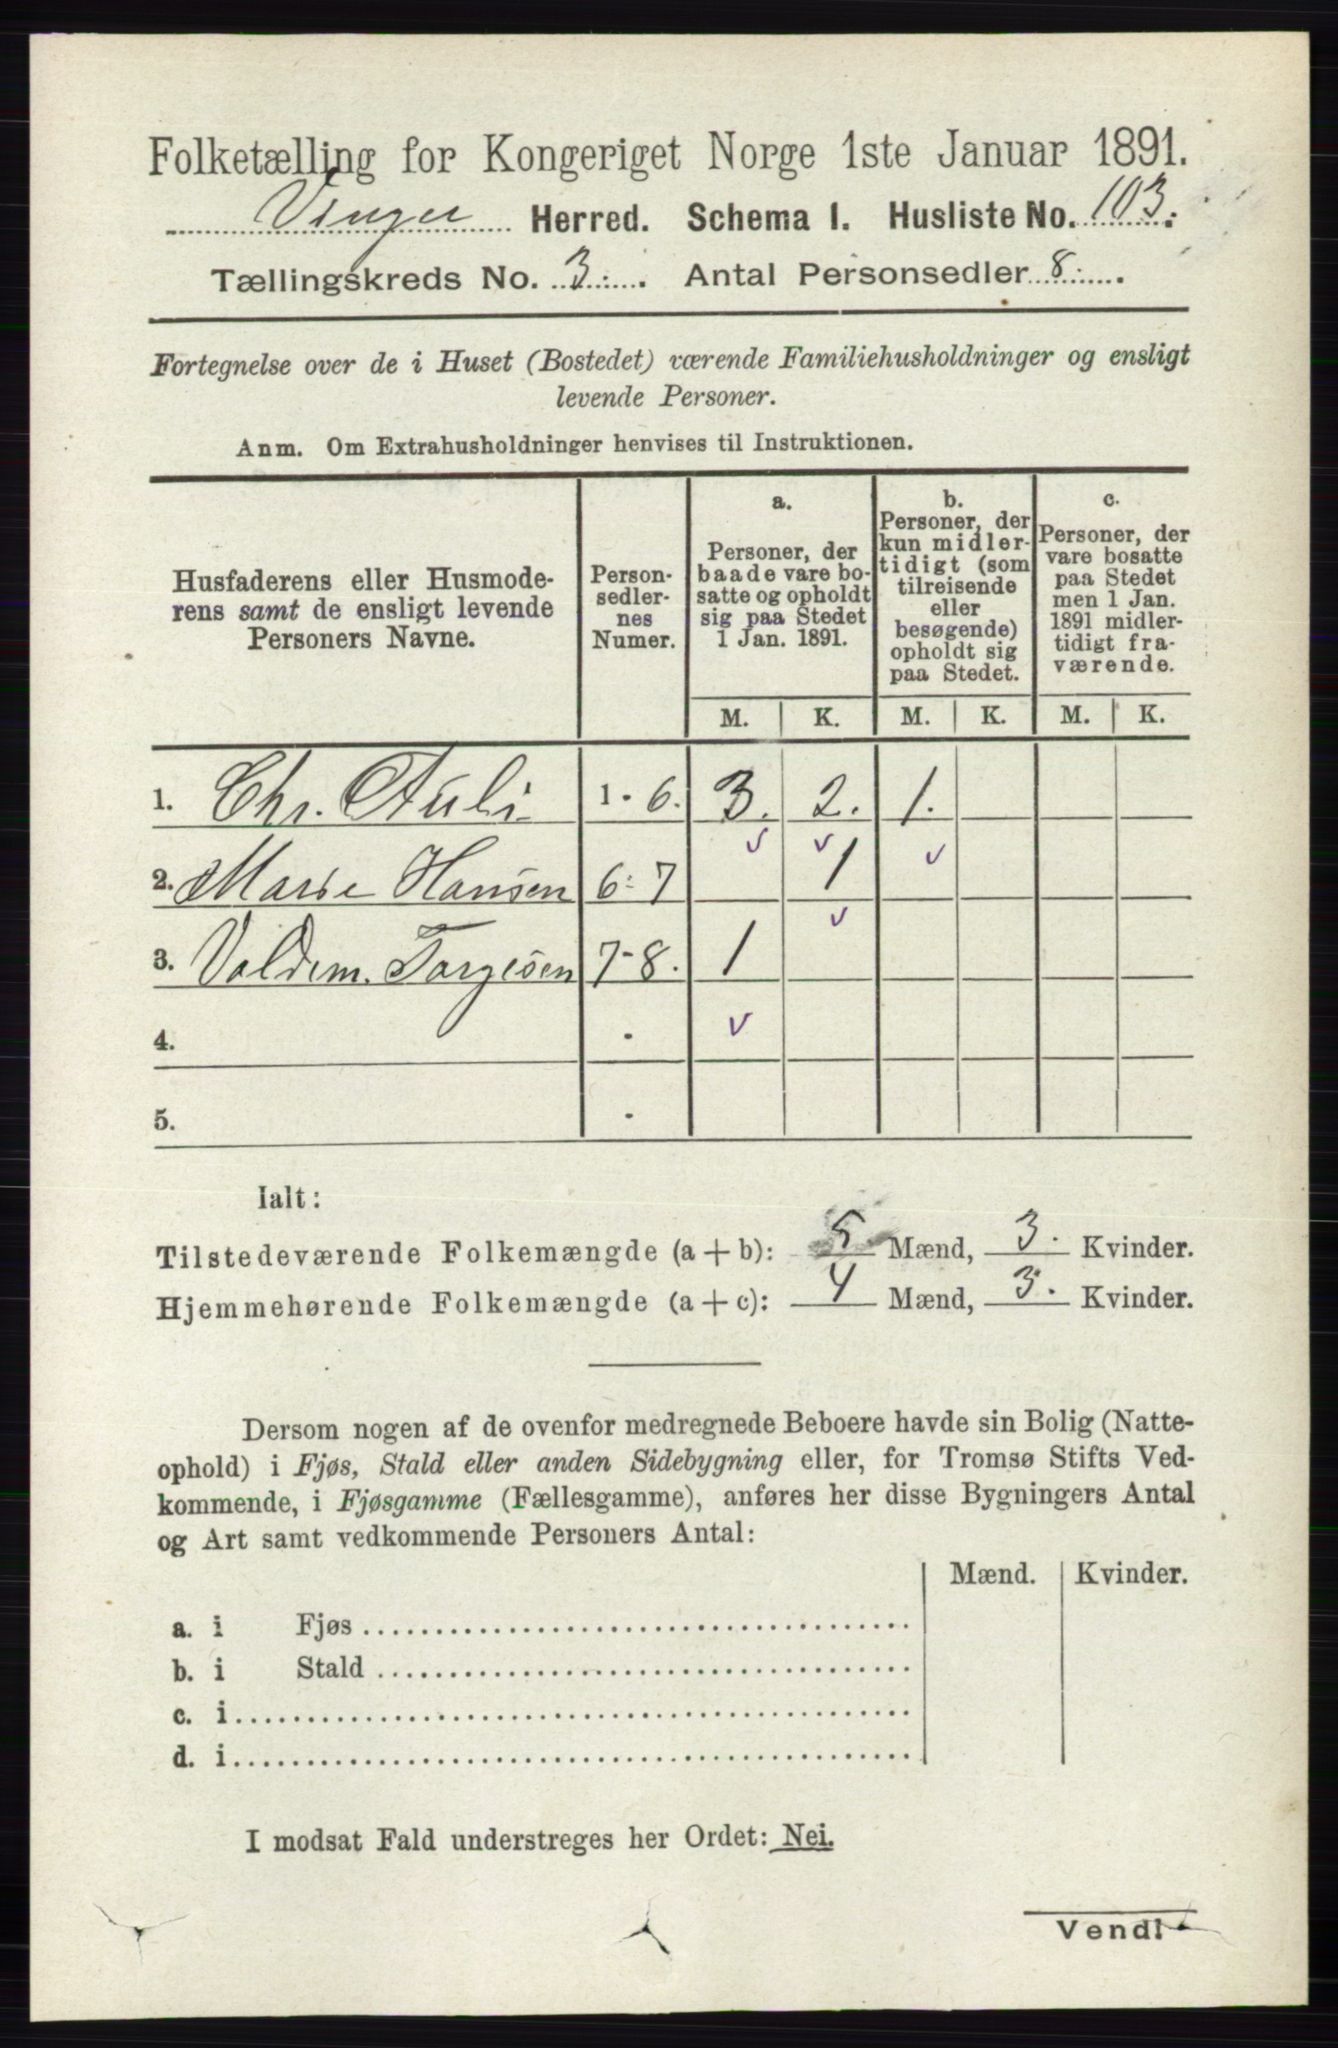 Folketælling for Kongeriget Norge 1ste Januar 1891.
Vinger Herred. Schema I. Husliste No. 103.
Tællingskreds No. 3. Antal Personsedler 8.
Fortegnelse over de i Huset (Bostedet) værende Familiehusholdninger og ensligt
levende Personer.
Anm. Om Extrahusholdninger henvises til Instruktionen.
Husfaderens eller Husmode-
rens samt de ensligt levende
Personers Navne.
Person-
sedler-
nes
Numer.
a.
Personer, der
baade vare bo-
satte og opholdt
sig paa Stedet
1 Jan. 1891.
b.
Personer, der
kun midler-
tidigt (som
tilreisende
eller
besøgende)
opholdt sig
paa Stedet.
c.
Personer, der
vare bosatte
paa Stedet
men 1 Jan.
1891 midler-
tidigt fra-
værende.
M. K. M. K. M. K.
1. Chr. Auli 1 - 6. 3. 2. 1.
2. Marie Hansen 6 - 7 1
3. Valdem. Torgesen 7 - 8. 1
4. -
5. -
Ialt:
Tilstedeværende Folkemængde (a + b): 5 Mænd, 3. Kvinder.
Hjemmehørende Folkemængde (a + c): 4 Mænd, 3. Kvinder.
Dersom nogen af de ovenfor medregnede Beboere havde sin Bolig (Natte-
ophold) i Fjøs, Stald eller anden Sidebygning eller, for Tromsø Stifts Ved-
kommende, i Fjøsgamme (Fællesgamme), anføres her disse Bygningers Antal
og Art samt vedkommende Personers Antal:
Mænd. Kvinder.
a. i Fjøs
b. i Stald
c. i
d. i
I modsat Fald understreges her Ordet: Nei.
Vend!